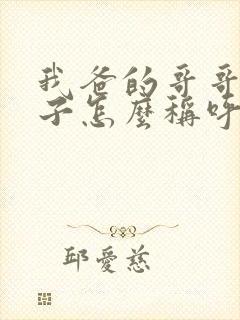 我爸的哥哥
子怎麼稱呼
邱愛慈